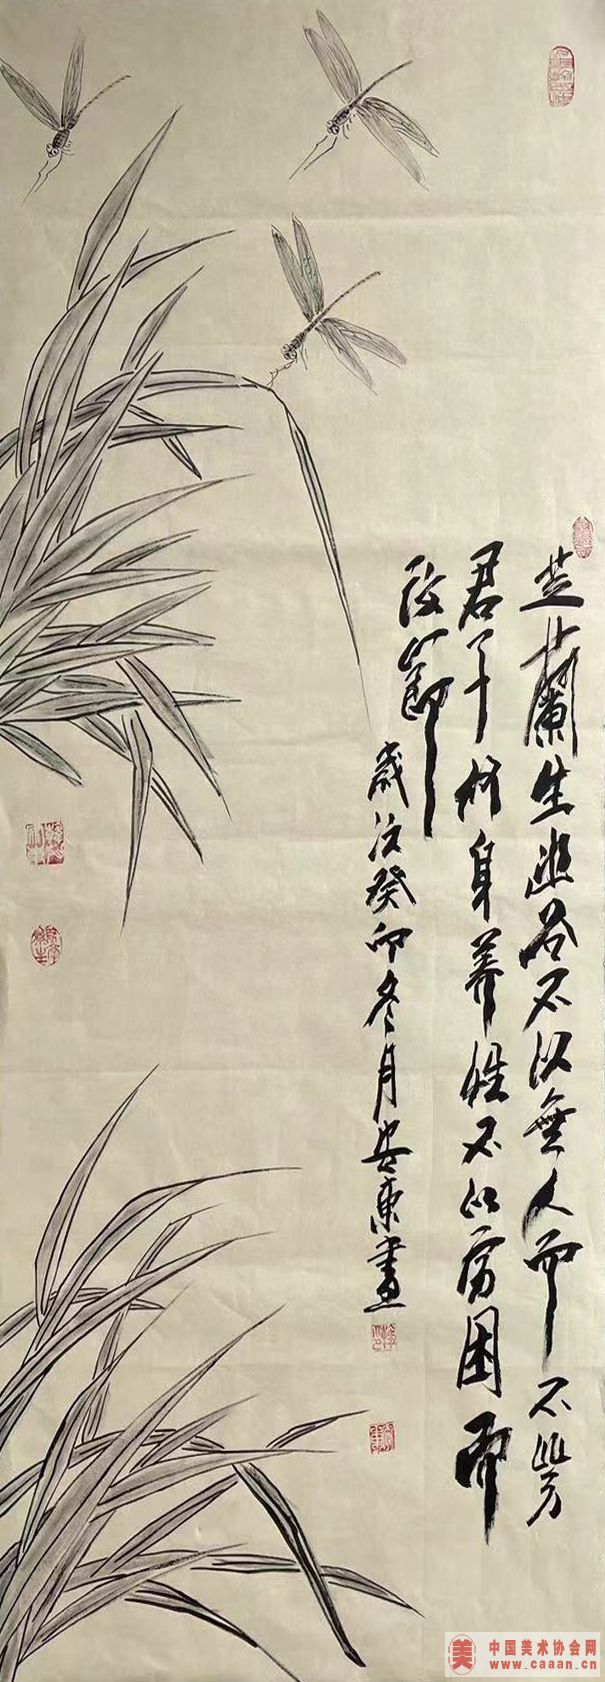 芝蘭生幽谷不以無人而不芳
君子修身養性不以窮困而
改節
歲次癸卯冬月安東畫
美
中国美术协会网
www.caaan.cn